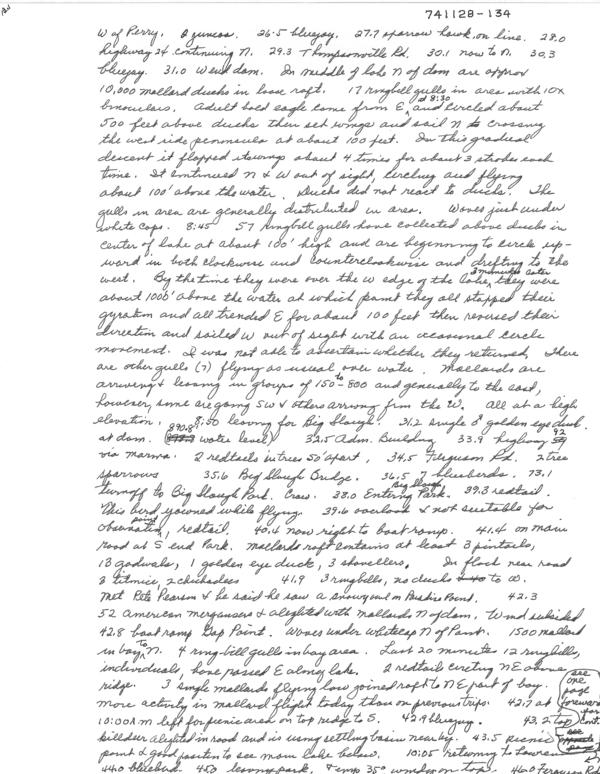 741128-134
W of Perry. 2 juncos. 26.5 bluejay. 27.7 sparrow hawk on line. 28.0
highway 24 continuing N. 29.3 Thompsonville Rd. 30.1 now to N. 30.3
bluejay. 31.0 W end dam. In middle of lake N of dam are approx
10,000 mallard ducks in loose raft. 17 ringbill gulls in area with 10x
binoculars. Adult bald eagle came from E, at 8:30 and circled about
500 feet above ducks then set wings and sail N crossing
the west side peninsula at about 100 feet. In this gradual
descent it flapped its wings about 4 times for about 3 strokes each
time. It continued N & W out of sight, circling and flying
about 100' above the water. Ducks did not react to ducks. The
gulls in area are generally distributed in area. Waves just under
white caps. 8:45 57 ringbill gulls have collected above ducks in
center of lake at about 100' high and are beginning to circle up-
ward in both clockwise and counterclockwise and drifting to the
west. By the time they were over the W edge of the lake, 3 minutes later they were
about 1000' above the water at which point they all stopped their
gyration and all trended E for about 100 feet then reversed their
direction and sailed W out of sight with an occasional circle
movement. I was not able to ascertain whether they returned. There
are other gulls (7) flying as usual over water. Mallards are
arriving & leaving in groups of 150 to 800 and generally to the east,
however, some are going SW & others arriving from the W. All at a high
elevation. 8:50 leaving for Big Slough. 31.2 single ♂ golden eye duck
at dam. (890.8 water level) 32.5 Adm. Building 33.9 highway 92
via marina. 2 redtails in trees 50' apart, 34.5 Ferguson Rd. 2 tree
sparrows 35.6 Big Slough Bridge. 36.5 7 bluebirds. 73.1
turnoff to Big Slough Park. Crow. 38.0 Entering Big Slough Park. 39.3 redtail.
This bird yawned while flying. 39.6 overlook & not suitable for
observation point, redtail. 40.4 now right to boat ramp. 41.4 on main
road at S end Park. mallards raft contains at least 3 pintails,
13 gadwalls, 1 golden eye duck, 3 shovellers. In flock near road
3 titmice, 2 chickadees 41.9 3 ringbills, no ducks to W.
Met Pete Pearson & he said he saw a snowy owl on Paradise Point. 42.3
52 American mergansers & alighted with mallards N of dam. Wind subsided
42.8 boat ramp Gap Point. Waves under whitecap N of Point. 1500 mallard
in bay to N. 4 ringbill gulls in bay area. Last 20 minutes 12 ringbills,
individuals have passed E along lake. 2 redtail circling NE above
ridge. 3 single mallards flying low joined raft to NE part of bay.
more activity in mallard flight today than on previous trips. 42.7 at
10:00 AM left for picnic area on top ridge to S. 42.9 bluejay. 43.2 top
killdeer alighted in road and is using settling basin nearby. 43.5 picnic
point a good position to see main lake below. 10:05 returning to Lawrence
44.0 bluebird. 45.0 leaving park. Temp 35° windy on top. 46.0 Ferguson Rd.
see
one
page
foreward
for
cont.